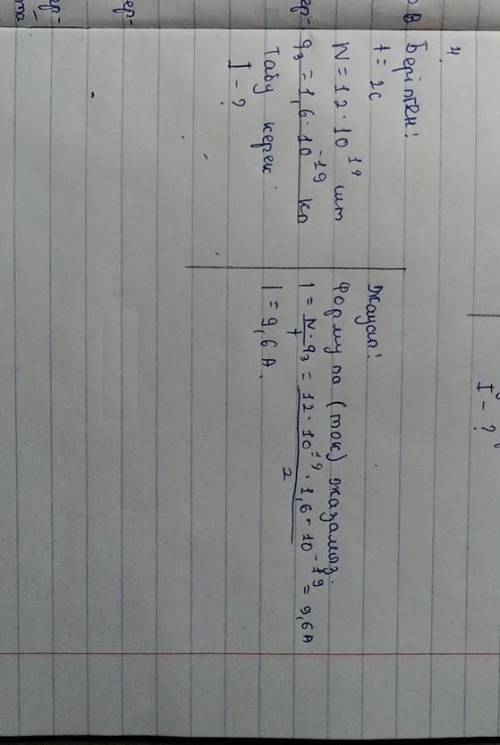 4.
Берілген:
t = 2с
N = 12 · 10¹⁹ шт
qэ = 1,6 · 10⁻¹⁹ кл
Табу керек
I – ?
Жауап:
Формула (ток) жазамыз.
I = N · qэ / t = 12 · 10¹⁹ · 1,6 · 10⁻¹⁹ / 2 = 9,6 А
I = 9,6 А.
I – ?